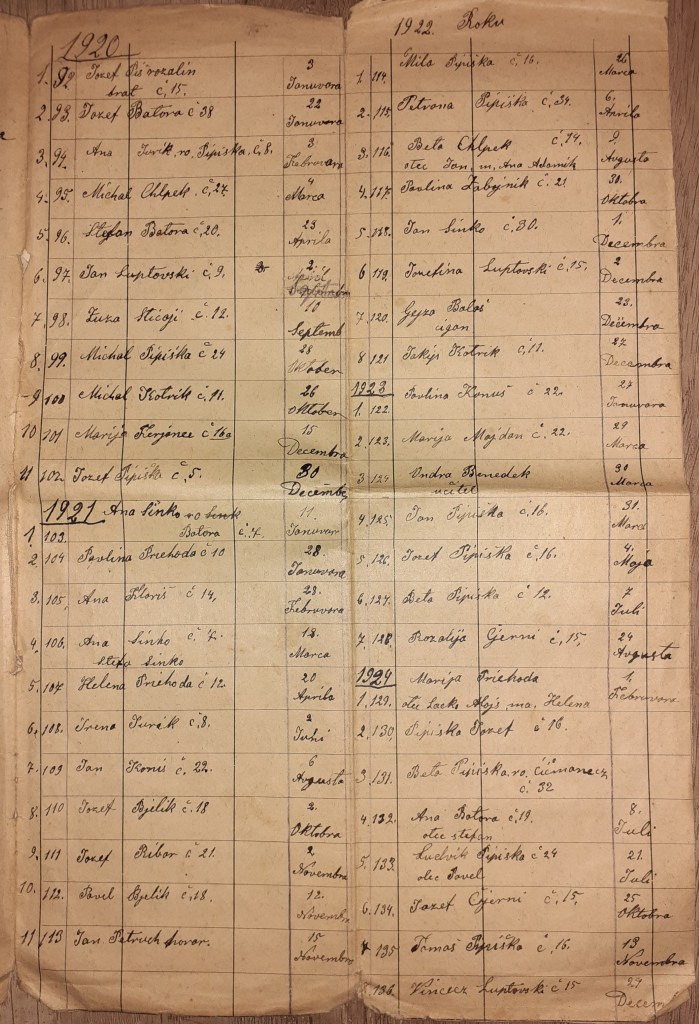 1920
1. 92. Jozef
brat č. 15. 3 Januvara
2. 93. Jozef Batora č 38 22 Januvara
3. 94. Ana Jurik. ro. Pipiška. č. 8. 3 Februvara
4. 95. Michal Chlpek č. 27. 4 Marca
5. 96. Stefan Batora č. 20. 23 Aprila
6. 97. Jan Luptovski č. 9. 2.
7. 98. Zuza č. 12. 10 Septemb
8. 99. Michal Pipiška č 24 28 Oktober
9 100 Michal Kotrik č. 11. 26 Oktober
10 101 Marija č 16a 15 Decembra
11 102. Jozef Pipiška č. 5. 30 Decembe
1921 Ana Sinko ro
1. 103. Batora č. 7. 11. Januvar
2. 104 Pavlina Priehoda č 10 28. Januvara
3. 105, Ana č 14, 28. Februvara
4. 106. Ana Sinko č 7. 12. Marca
Stefa Sinko
5. 107 Helena Priehoda č 12 20 Aprila
6. 108. Irena Jurik č. 8. 2 Juli
7. 109 Jan č. 22. 6 Avgusta
8. 110 Jozef Bjelik č. 18 2. Oktobra
9. 111 Jozef Ribar č. 21. 2. Novembra
10. 112. Pavil Bjelik č. 18. 12. Novemb
11 113 Jan Petruch hovar. 15 Novembra
1922. Roku
1. 114. Mila Pipiška č. 16. 26 Marca
2. 115. Petrona Pipiška č. 34. 6. Aprila
3. 116. Beta Chlpek č. 14. 9. Avgusta
otec Jan, m. Ana Adamik
4. 117. Pavlina č. 21 30. Oktobra
5. 118. Jan Sinko č. 30. 1. Decembra
6 119. Jozefina Luptovski č. 15. 2 Decembra
7. 120. Gejza Baloš 22. Decembra
cigan
8 121 Kotrik č. 11. 27 Decembra
1923 Pavlina Konuš č 22. 27 Januvara
1. 122.
2. 123. Marija Majdan č. 22. 29 Marca
3 124 Ondra Benedek 30 Marca
učitel
4. 125. Jan Pipiška č. 16. 31. Marca
5. 126. Jozef Pipiška č. 16. 4. Maja
6. 127. Beta Pipiska č 12. 7 Juli
7. 128. Rozalija Čjerni č. 15, 24 Avgusta
1924 Marija Priehoda 1. Februvara
1. 129. otec Lacko Alojs, ma. Helena
2. 130. Pipiška Jozef č 16.
3. 131. Beta Pipiška. ro.
č. 32
4. 132. Ana Batora č. 19. 8. Juli
otec stefan
5. 133. Ludvik Pipiska č 24 21. Juli
otec Pavel
6. 134. Jozef Čjerni č. 15, 25 Oktobra
7 135 Tomaš Pipiška č. 16. 13 Novembra
8. 136. Luptovski č 15 29 Decem